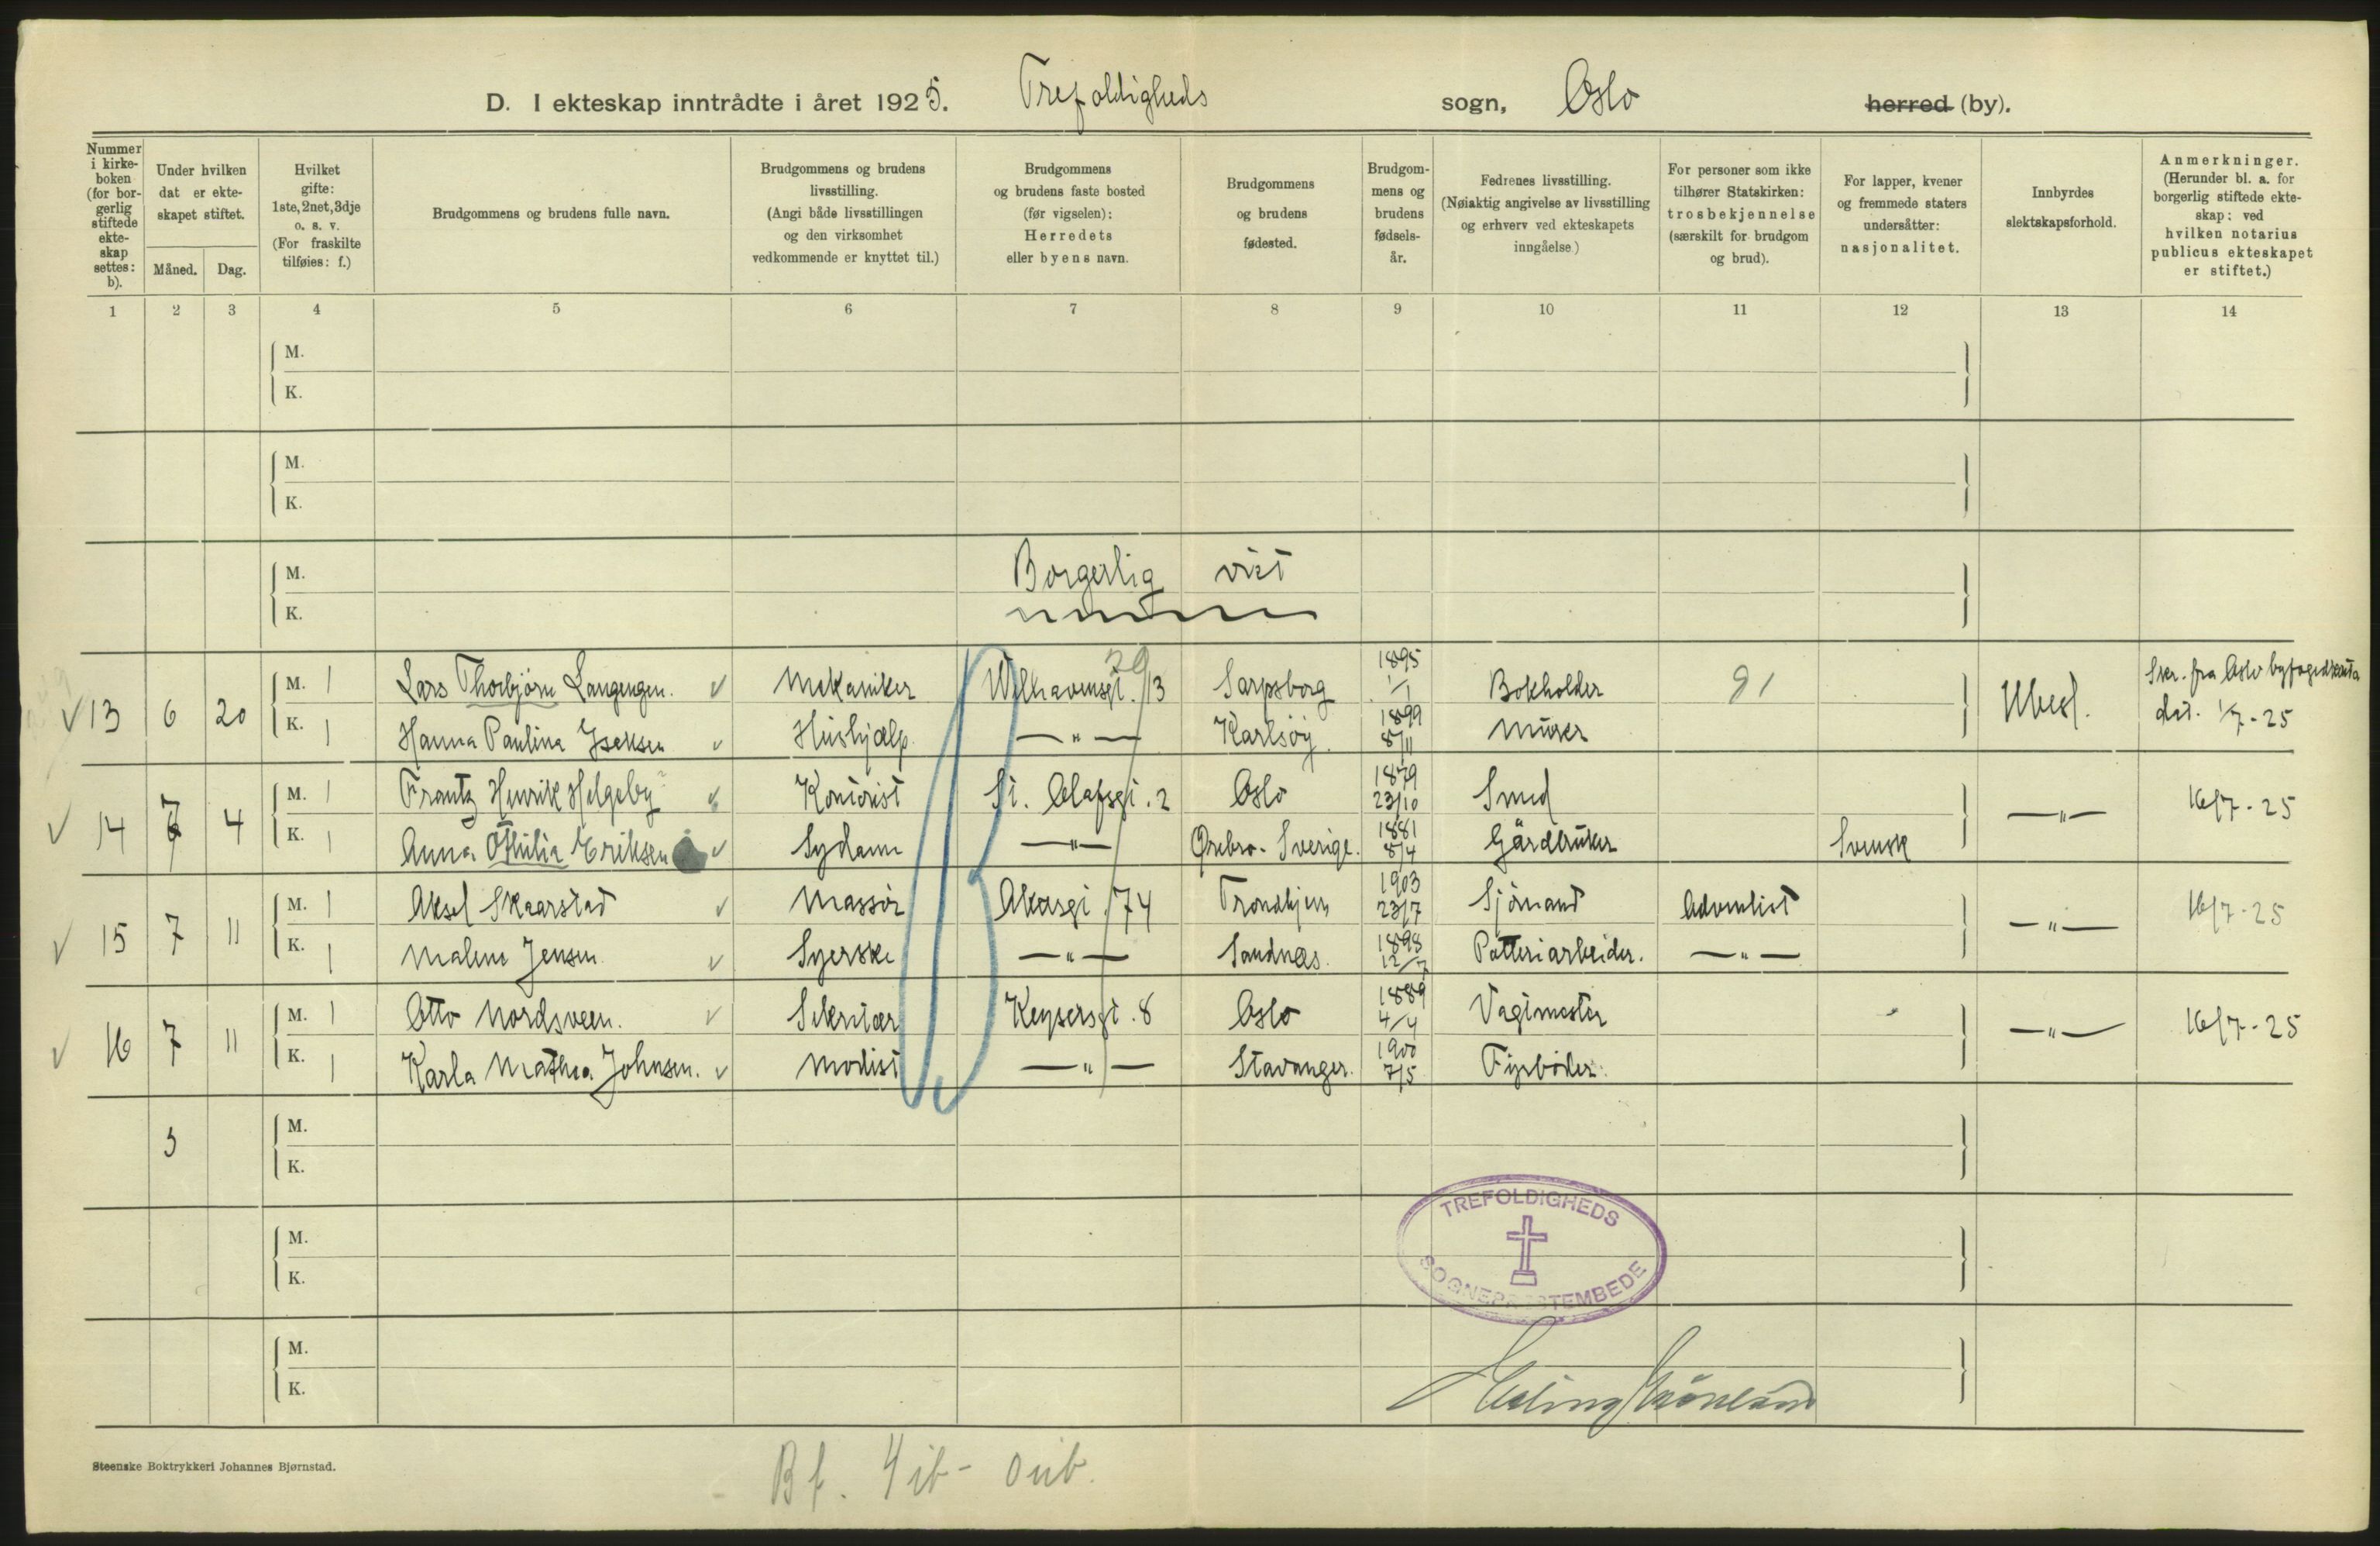 D. I ekteskap inntrådte i året 1925. Trefoldigheds sogn, Oslo herred (by).
Nummer i kirke-boken (for bor-gerlig stiftede ekte-skap settes: b).
Under hvilken dat er ekte-skapet stiftet.
Måned. Dag.
Hvilket gifte: 1ste, 2net, 3dje o. s. v. (For fraskilte tilføies: f.)
Brudgommens og brudens fulle navn.
Brudgommens og brudens livsstilling. (Angi både livsstillingen og den virksomhet vedkommende er knyttet til.)
Brudgommens og brudens faste bosted (før vigselen): Herredets eller byens navn.
Brudgommens og brudens fødested.
Brudgom-mens og brudens fødsels-år.
Fedrenes livsstilling. (Nøiaktig angivelse av livsstilling og erhverv ved ekteskapets inngåelse)
For personer som ikke tilhører Statskirken: trosbekjennelse (særskilt for brudgom og brud).
For lapper, kvener og fremmede staters undersåtter: nasjonalitet.
Innbyrdes slektskapsforhold.
Anmerkninger. (Herunder bl. a. for borgerlig stiftede ekte-skap: ved hvilken notarius publicus ekteskapet er stiftet.)
1 2 3 4 5 6 7 8 9 10 11 12 13 14
M.
K.
M.
K.
M. Borgerlig viet
K.
13 6 20 M. 1 Lars Thorbjørn Langengen. Mekaniker Welhavensgt. 13 Sarpsborg 1895 1/1 Bokholder 91 Ubesl. Skr. fra Oslo byfogedkonto
K. 1 Hanna Paulina Iseksen Hüshjælp. —"— Karlsöy 1899 8/11 Mürer dat. 1/7-25
14 7 4 M. 1 Frantz Henrik Helgeby Kontorist St. Olafsgt. 2 Oslo 1879 23/10 Smed —"— 16/7-25
K. 1 Anna Othilia Eriksen Sydame —"— Ørebro - Sverige. 1881 8/4 Gårdbrüker Svensk
15 7 11 M. 1 Aksel Skaarstad Massör Akersgt. 74 Trondhjem 1903 23/7 Sjömand Adventist —"— 16/7-25
K. 1 Malene Jensen Syerske —"— Sandnæs. 1898 12/7 Potteriarbeider. —"—
16 7 11 M. 1 Otto Nordsveen. Sekretær Keysersgt. 8 Oslo 1889 4/4 Vagtmester —"— 16/7-25
K. 1 Karla Mathea Johnsen. Modist —"— Stavanger. 1900 7/5 Fyrböder.
3 M.
K.
M.
K.
TREFOLDIGHEDS
SOGNEPRESTEMBEDE
M.
K.
Erling Grönland
Steenske Boktrykkeri Johannes Bjørnstad.
Bf. 4 ib - 0 uib.